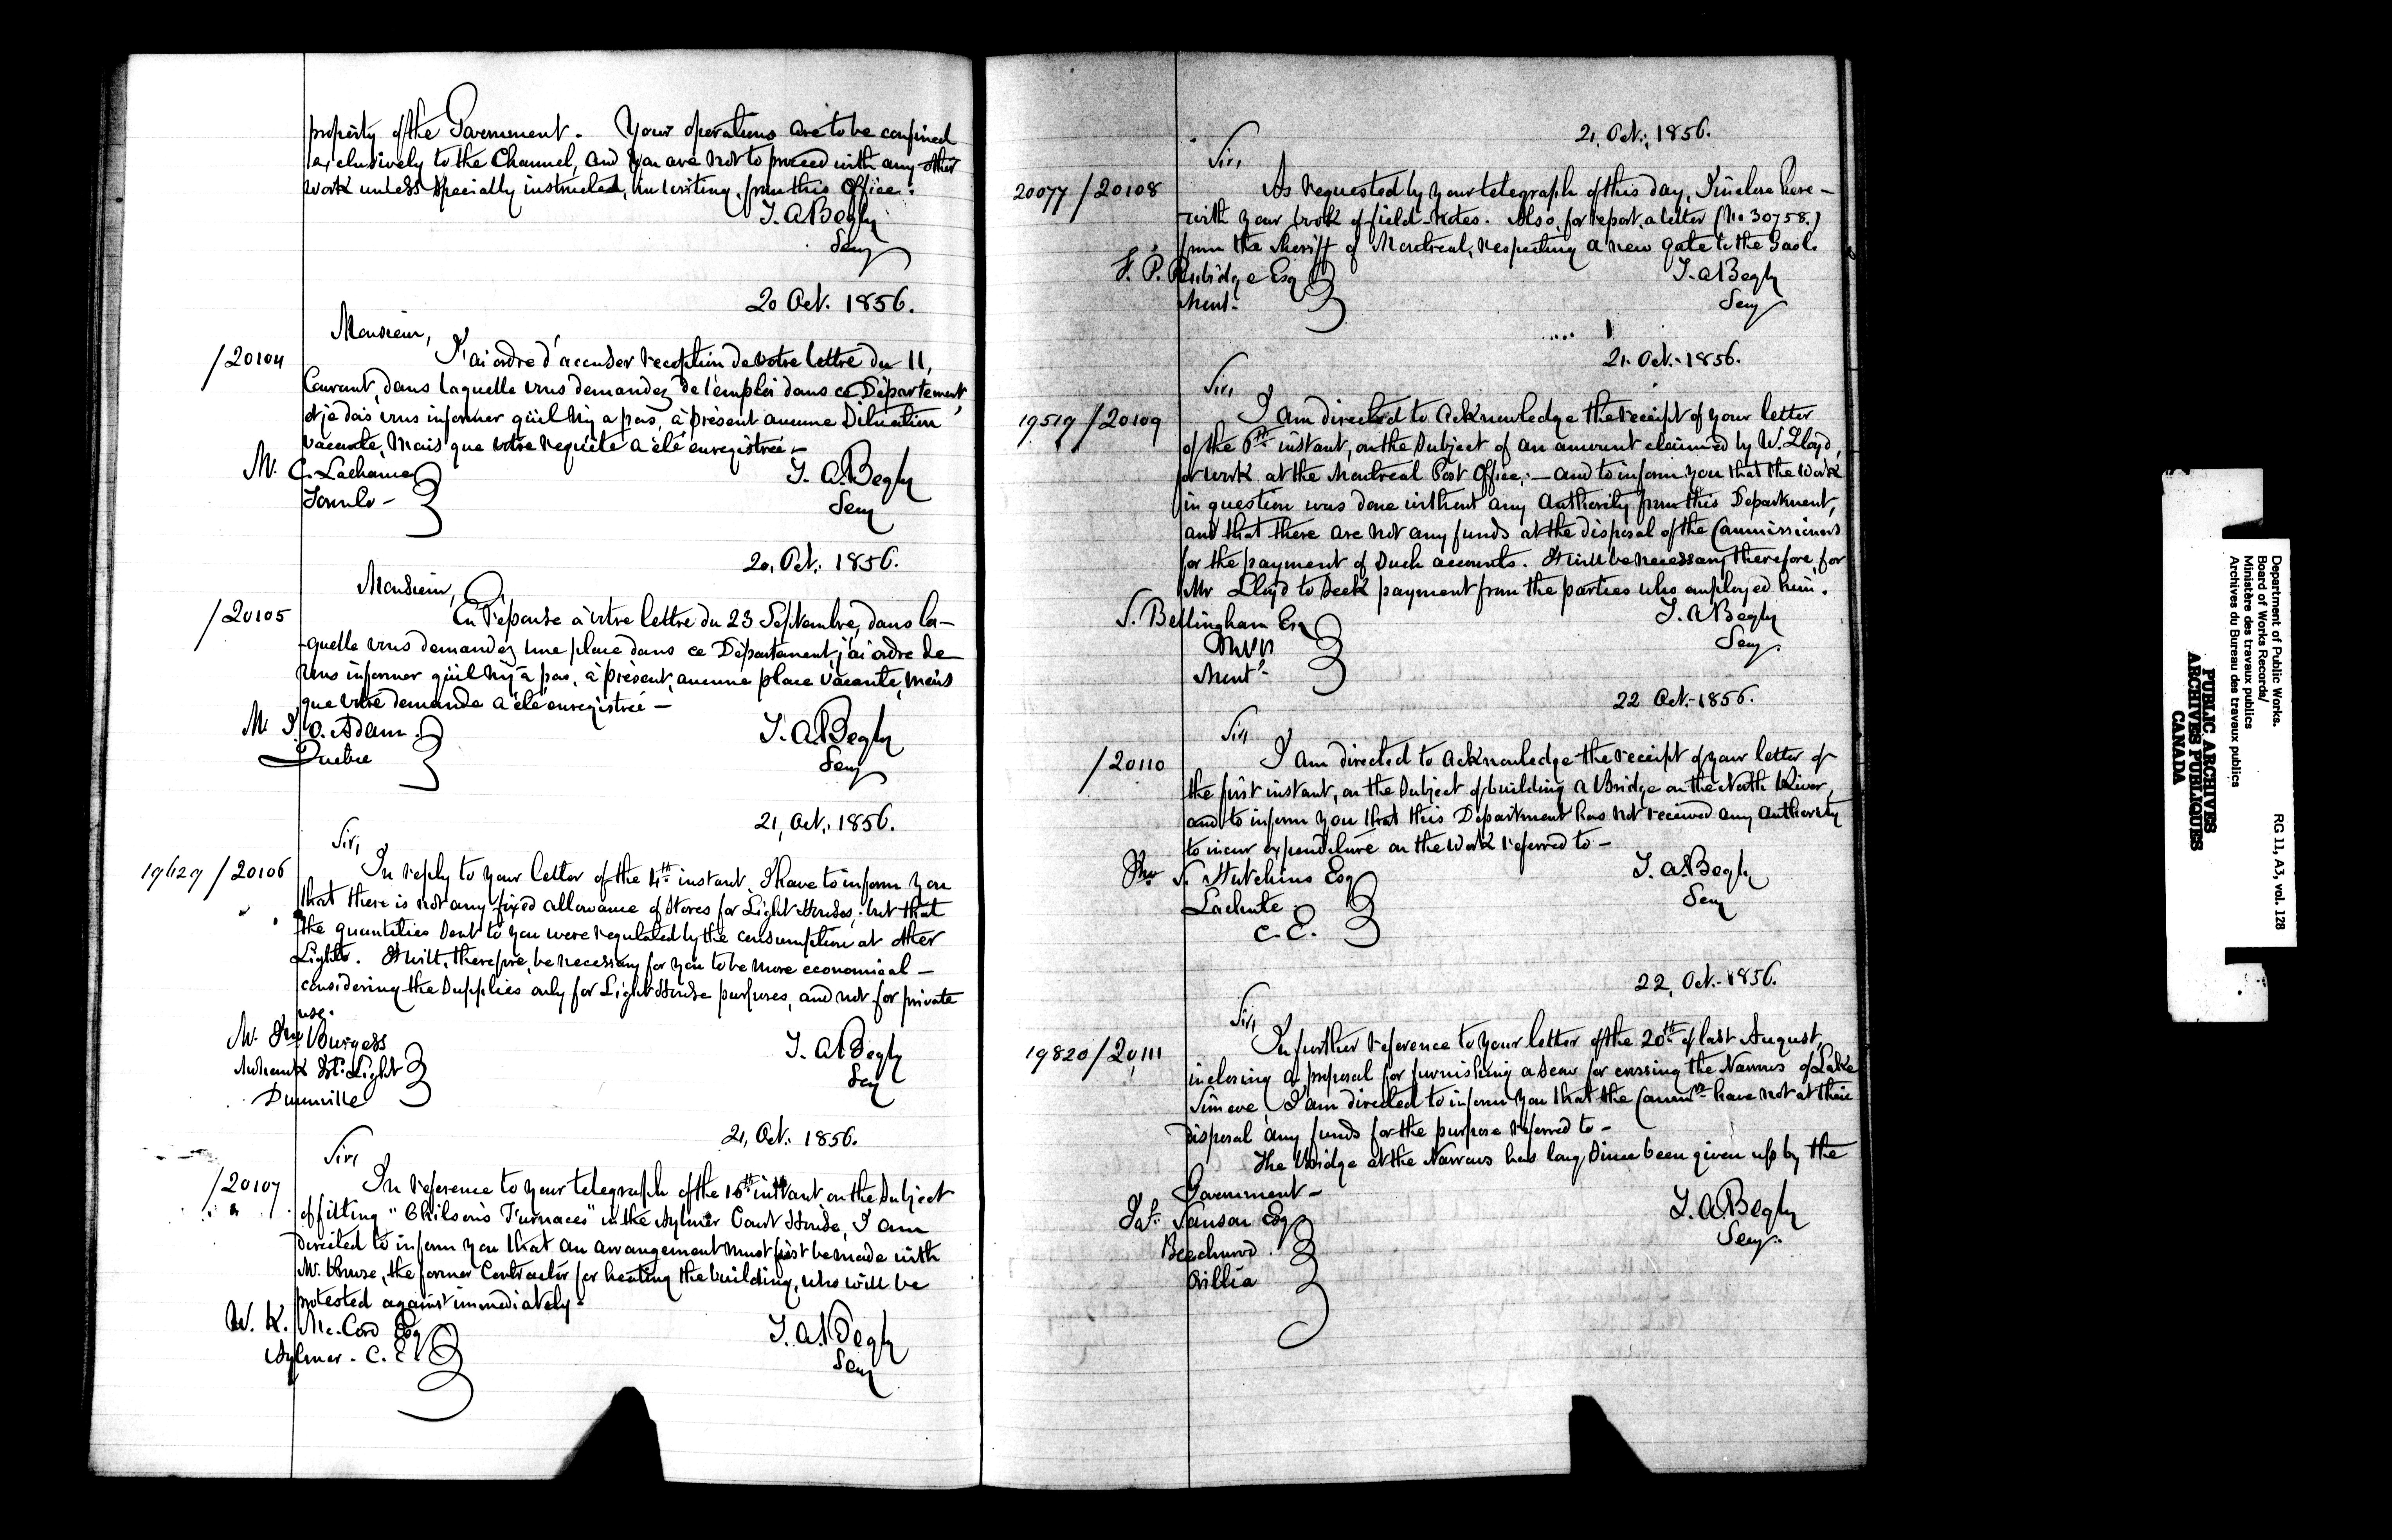 property of the Government. Your operations are to be confined
exclusively to the Channel, and you are not to proceed with any other
work unless specially instructed, in writing, from this Office.
T. A. Begly
Secy
20 Oct. 1856.
Monsieur,
/20104
J'ai ordre d'accuser reception de votre lettre du 11,
Courant, dans laquelle vous demandez de l'emploi dans ce Département,
et je dois vous informer qu'il n'y a pas, à présent aucune Situation
vacante, mais que votre requête a été enregistrée -
M. C.
T. A. Begly
Toronto -
Secy
20, Oct. 1856.
Monsieur,
/20105
En réponse à votre lettre du 23 Septembre, dans la-
-quelle vous demandez une place dans ce Département, j'ai ordre de
vous informer qu'il n'y a pas, à présent, aucune place vacante, mais
que votre demande a été enregistrée -
M. J. O. Adam
T. A. Begly
Quebec
Secy
21, Oct. 1856.
Sir,
19629/20106
In reply to your letter of the 4th instant, I have to inform you
that there is not any fixed allowance of Stores for Light Houses, but that
the quantities sent to you were regulated by the consumption at other
Lights. It will, therefore, be necessary for you to be more economical -
considering the supplies only for Light House purposes, and not for private
use.
M. Jno Burgess
T. A. Begly
Mohawk Isd. Light
Secy
Dunnville
21, Oct. 1856.
Sir,
/20107
In reference to your telegraph of the 16th instant on the Subject
of fitting "Chilson's Furnaces" in the Aylmer Court House, I am
directed to inform you that an arrangement must first be made with
M. , the former Contractor for heating the building, who will be
protested against immediately -
W. K. McCord Esq
T. A. Begly
Aylmer - C. E.
Secy
21, Oct. 1856.
Sir,
20077/20108
As requested by your telegraph of this day, I inclose here-
-with your book of field-notes. Also, for report, a letter (No 30758.)
from the Sheriff of Montreal, respecting a new gate to the Gaol.
F. P. Rubidge Esq
T. A. Begly
Mont.
Secy
21. Oct. 1856.
Sir,
19519/20109
I am directed to acknowledge the receipt of your letter
of the 6th instant, on the Subject of an amount claimed by W. Lloyd,
for work at the Montreal Post Office; - and to inform you that the work
in question was done without any authority from this Department,
and that there are not any funds at the disposal of the Commissioners
for the payment of such accounts. It will be necessary therefore, for
Mr Lloyd to seek payment from the parties who employed him.
S. Bellingham Esq
T. A. Begly
Secy
Mont.
22 Oct. 1856.
Sir,
/20110
I am directed to acknowledge the receipt of your letter of
the first instant, on the Subject of building a Bridge on the North River,
and to inform you that this Department has not received any authority
to incur expenditure on the work referred to -
S. Hutchins Esq
T. A. Begly
Lachute
Secy
C. E.
22, Oct. 1856.
Sir,
19820/20,111
In further reference to your letter of the 20th of last August,
inclosing a proposal for furnishing a Scow for crossing the Narrows of Lake
Simcoe, I am directed to inform you that the Commrs. have not at their
disposal any funds for the purpose referred to -
The Bridge at the Narrows has long since been given up by the
Government -
Jas. Sanson Esq
T. A. Begly
Beechwood
Secy
Orillia
Department of Public Works.
Board of Works Records/
Ministère des travaux publics
Archives du Bureau des travaux publics
RG 11, A3, vol. 128
PUBLIC ARCHIVES
ARCHIVES PUBLIQUES
CANADA